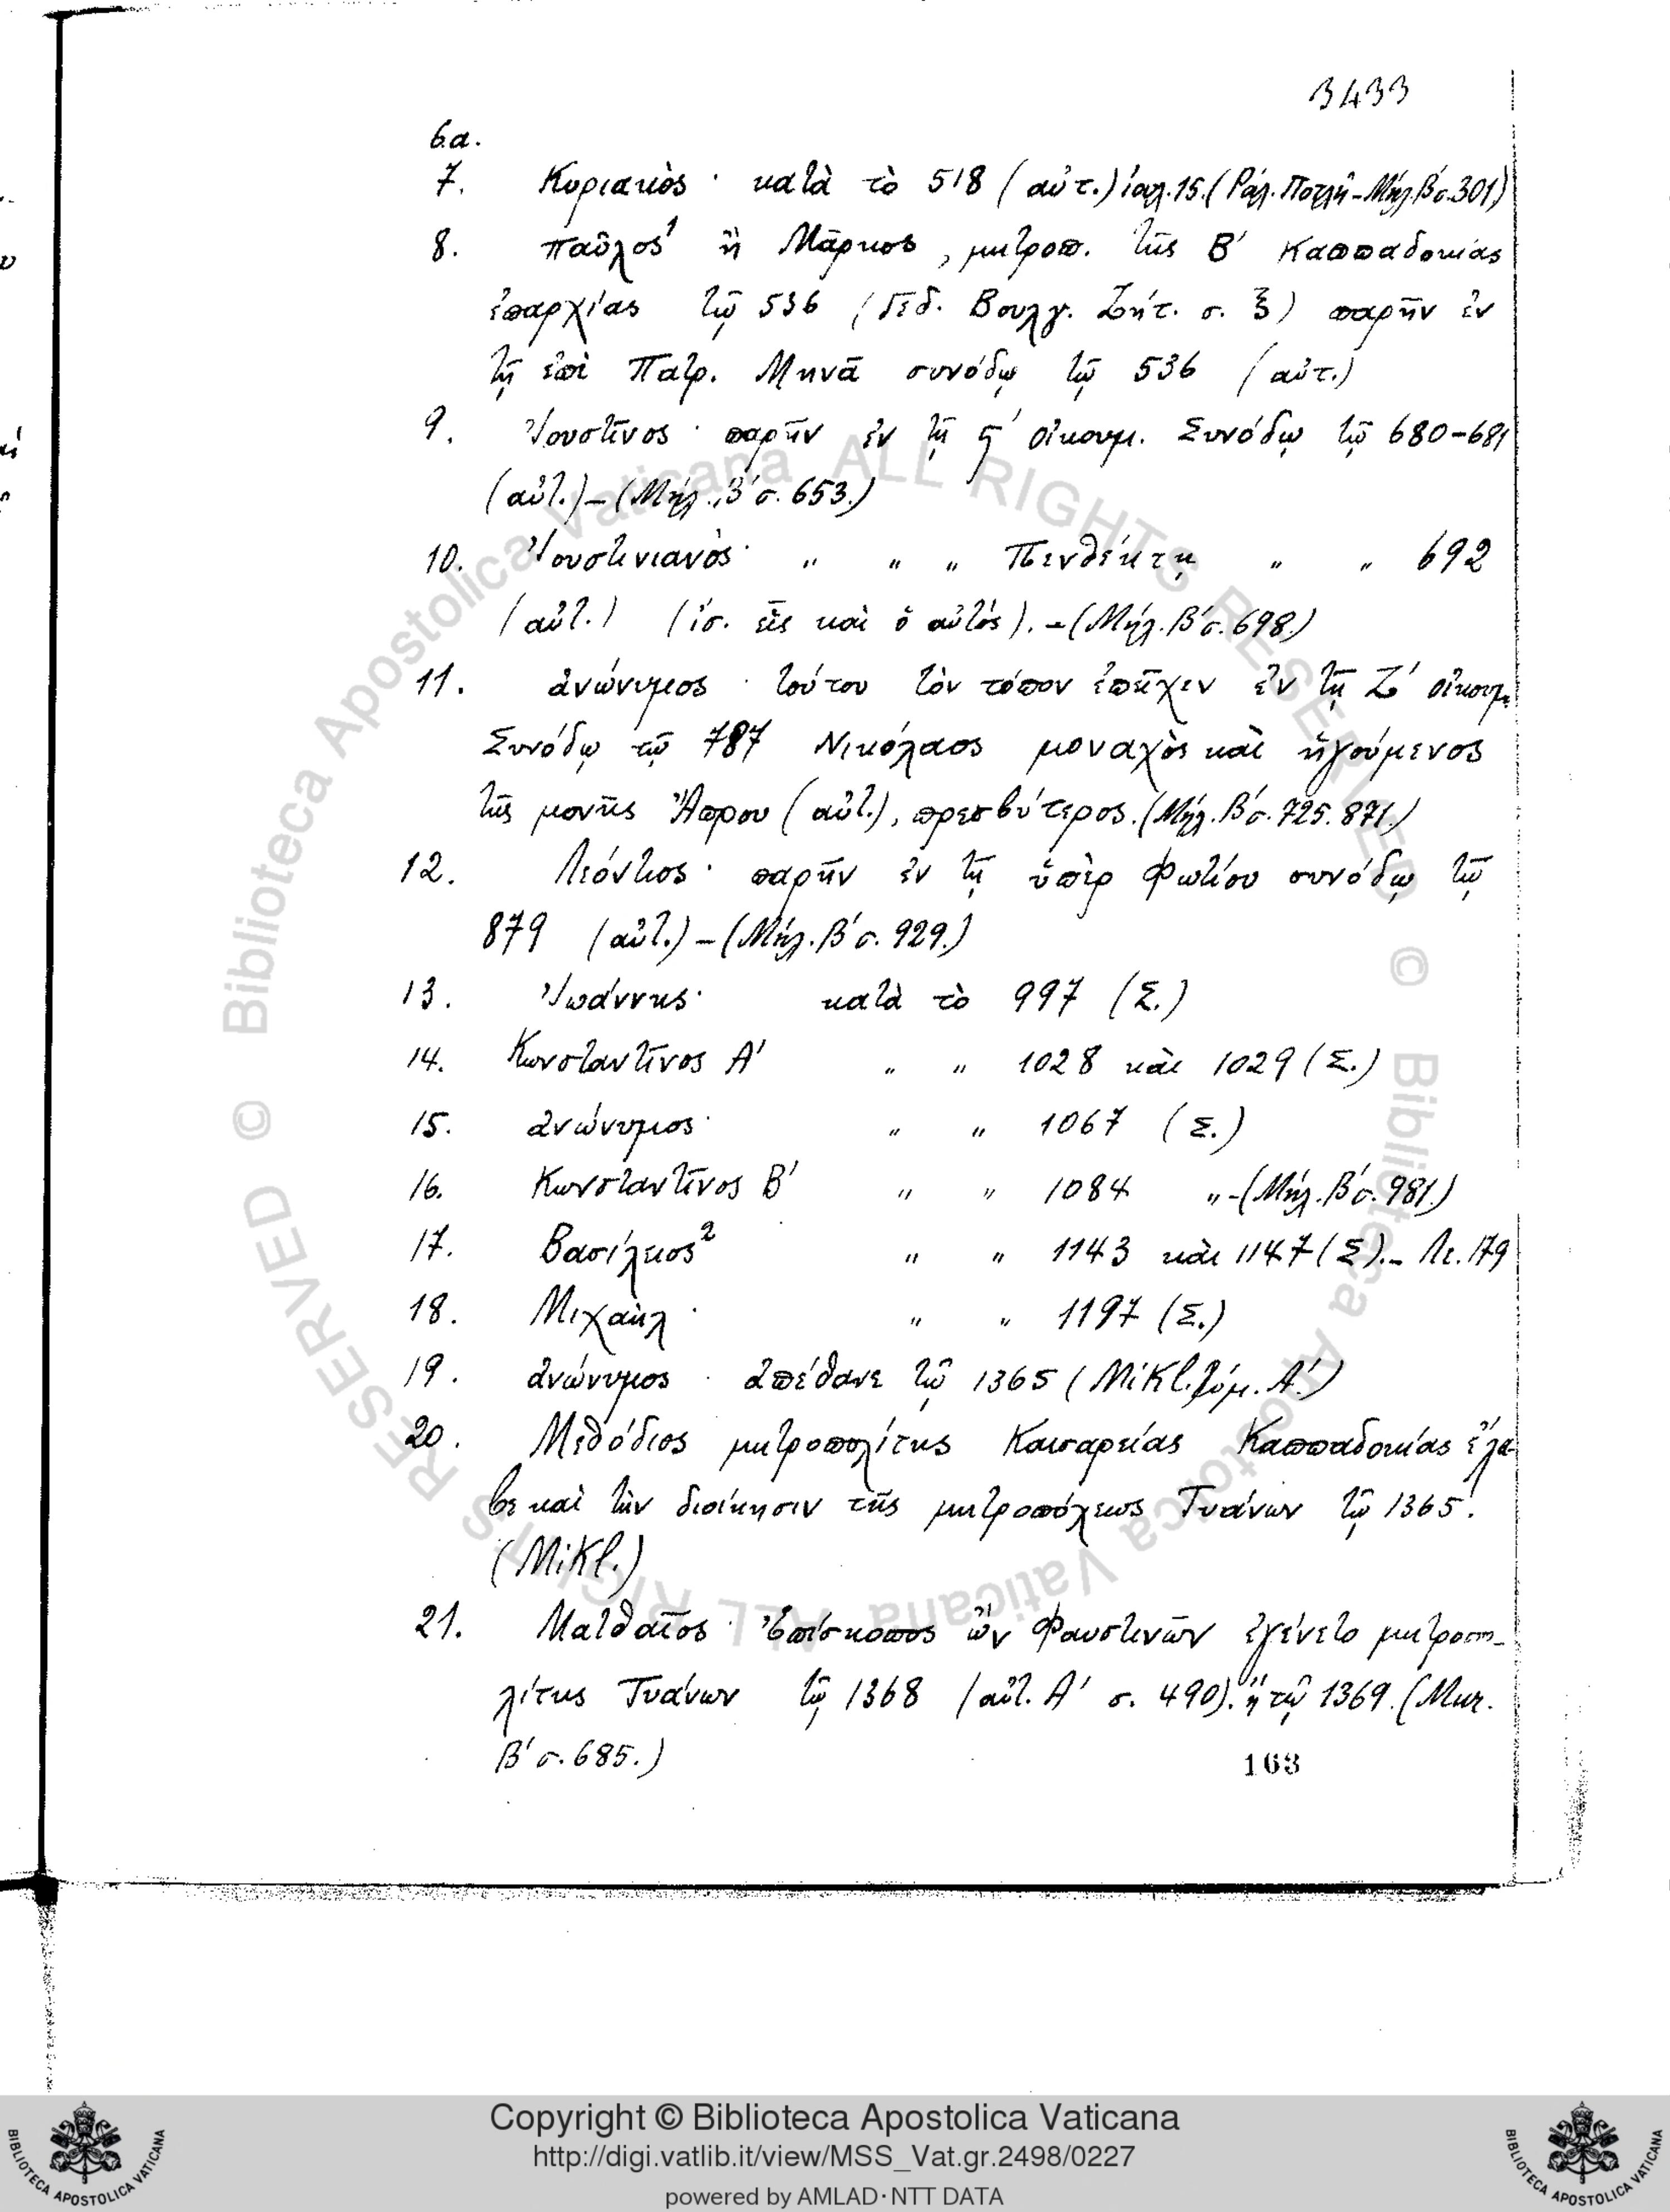 3433
6.α.
7. Κυριακὸς · κατὰ τὸ 518 (αὐτ.) ἰαλ. 15. (Ράλ. Ποτλῆ - Μήλ. Β΄ σ. 301)
8. Παῦλος¹ ἢ Μάρκος, μητροπ. τῆς Β΄ Καππαδοκίας
ἐπαρχίας τῷ 536 (Γεδ. Βουλγ. Ζήτ. σ. ξ) παρῆν ἐν
τῇ ἐπὶ Πατρ. Μηνᾶ συνόδῳ τῷ 536 (αὐτ.)
9. Ἰουστῖνος · παρῆν ἐν τῇ ϛ΄ οἰκουμ. Συνόδῳ τῷ 680-681
(αὐτ.) - (Μήλ. Β΄ σ. 653.)
10. Ἰουστινιανὸς · " " " Πενθέκτῃ " " 692
(αὐτ.) (ἴσ. εἷς καὶ ὁ αὐτός). - (Μήλ. Β΄ σ. 698.)
11. ἀνώνυμος · τούτου τὸν τόπον ἐπεῖχεν ἐν τῇ Ζ΄ οἰκουμ.
Συνόδῳ τῷ 787 Νικόλαος μοναχὸς καὶ ἡγούμενος
τῆς μονῆς Ἄπρου (αὐτ.), πρεσβύτερος. (Μήλ. Β΄ σ. 725. 871.)
12. Λεόντιος · παρῆν ἐν τῇ ὑπὲρ Φωτίου συνόδῳ τῷ
879 (αὐτ.) - (Μήλ. Β΄ σ. 929.)
13. Ἰωάννης · κατὰ τὸ 997 (Σ.)
14. Κωνσταντῖνος Α΄ " " 1028 καὶ 1029 (Σ.)
15. ἀνώνυμος · " " 1067 (Σ.)
16. Κωνσταντῖνος Β΄ " " 1084 " - (Μήλ. Β΄ σ. 981.)
17. Βασίλειος² " " 1143 καὶ 1147 (Σ). - Λε. 179
18. Μιχαὴλ · " " 1197 (Σ.)
19. ἀνώνυμος · ἀπέθανε τῷ 1365 (Mikl. τόμ. Α΄.)
20. Μεθόδιος μητροπολίτης Καισαρείας Καππαδοκίας ἔλα-
βε καὶ τὴν διοίκησιν τῆς μητροπόλεως Τυάνων τῷ 1365.
(Mikl.)
21. Ματθαῖος · Ἐπίσκοπος ὢν Φαυστινῶν ἐγένετο μητροπο-
λίτης Τυάνων τῷ 1368 (αὐτ. Α΄ σ. 490). ἢ τῷ 1369. (Μηλ.
Β΄ σ. 685.)
163
© Biblioteca Apostolica Vaticana ALL RIGHTS RESERVED © Biblioteca Apostolica Vaticana ALL RIGHTS RESERVED
Copyright © Biblioteca Apostolica Vaticana
http://digi.vatlib.it/view/MSS_Vat.gr.2498/0227
powered by AMLAD·NTT DATA
BIBLIOTECA APOSTOLICA VATICANA
BIBLIOTECA APOSTOLICA VATICANA